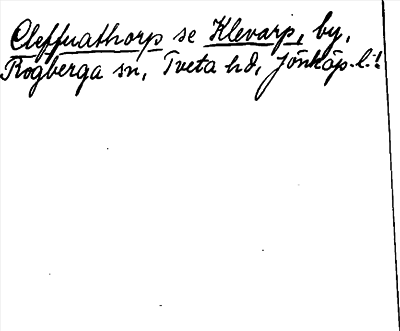 Cleffuathorp se Klevarp, by,
Rogberga sn, Tveta hd, Jönköp. l: